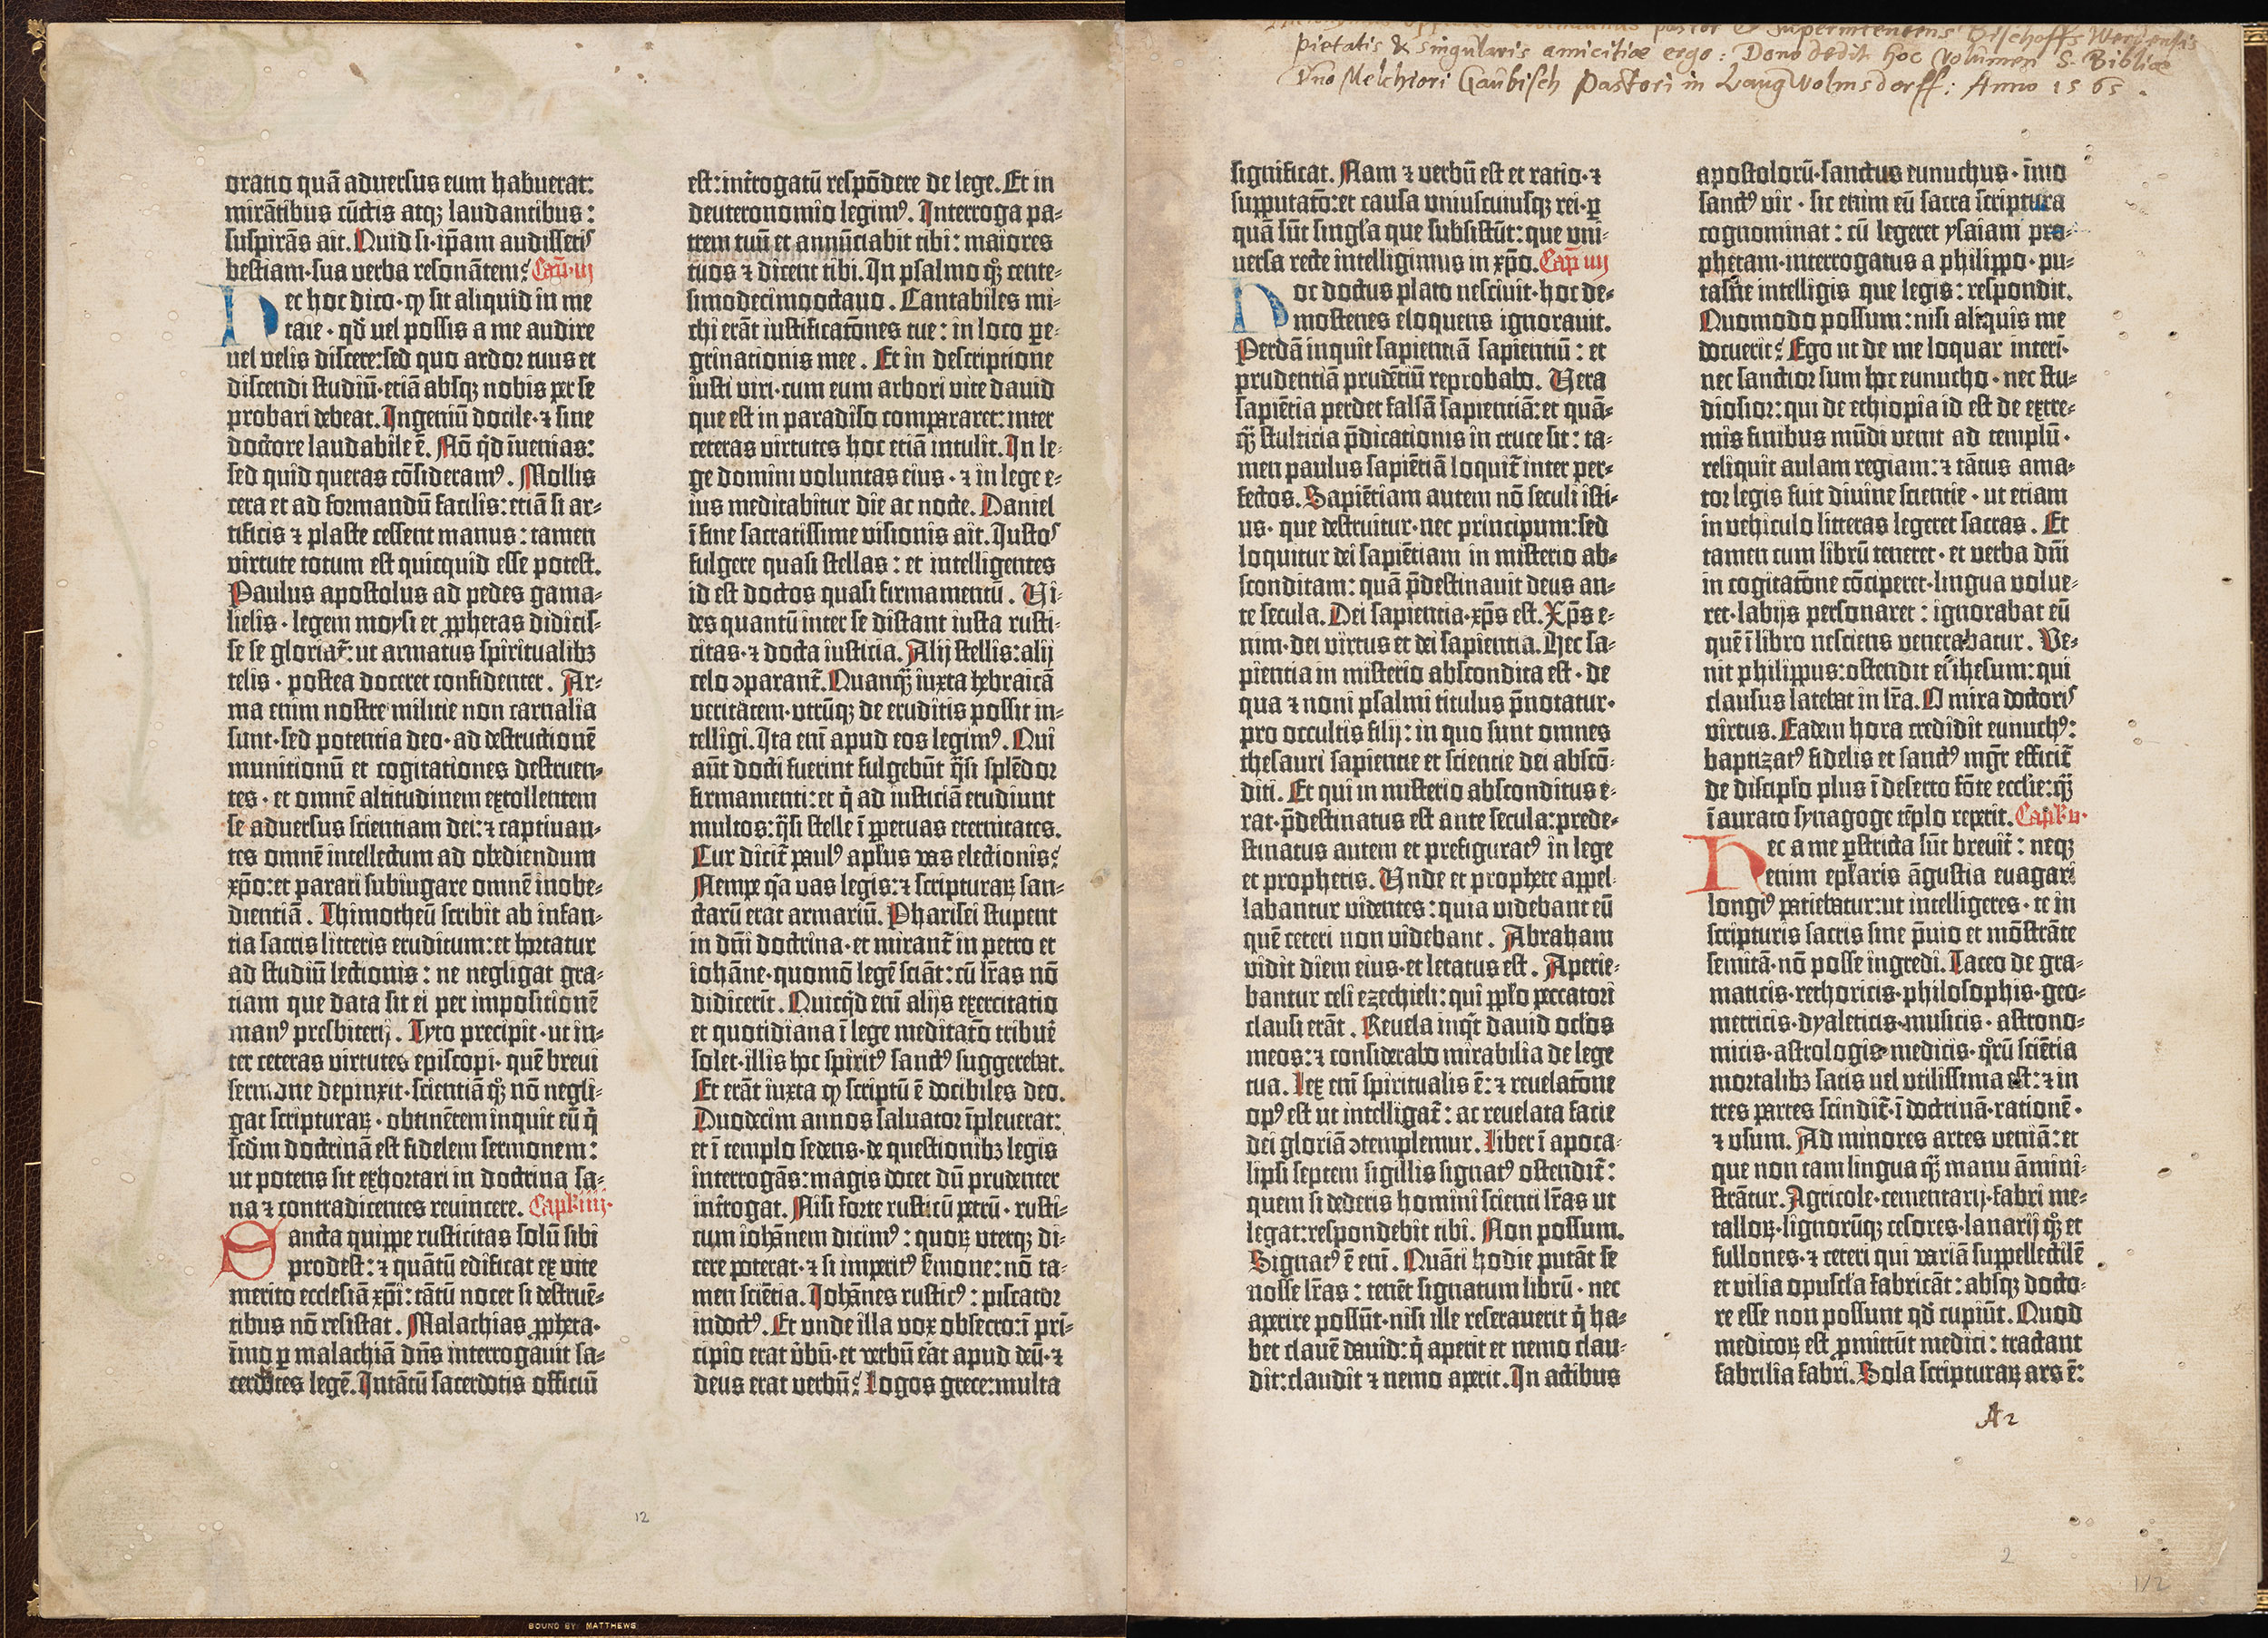 oratio quā aduersus eum habuerat:
mirātibus cūctis atqꝫ laudantibus:
suspirās ait. Quid si·ip̄am audissetis
bestiam·sua verba resonātem? Cap̄·iij
Nec hoc dico·ꝙ sit aliquid in me
tale·qd̄ vel possis a me audire
uel velis discere:sed quo ardor tuus et
discendi studiū·etiā absqꝫ nobis per se
probari debeat. Ingeniū docile·⁊ sine
doctore laudabile ē. Nō qd̄ īuenias:
sed quid queras cōsideramꝰ. Mollis
cera et ad formandū facilis:etiā si ar-
tificis ⁊ plaste cessent manus: tamen
virtute totum est quicquid esse potest.
Paulus apostolus ad pedes gama-
lielis·legem moysi et ꝓphetas didicis-
se se gloriat̄:ut armatus spiritualibꝫ
telis·postea doceret confidenter. Ar-
ma enim nostre militie non carnalia
sunt·sed potentia deo·ad destructionē
munitionū et cogitationes destruen-
tes·et omnē altitudinem extollentem
se aduersus scientiam dei:⁊ captiuan-
tes omnē intellectum ad obediendum
xp̄o:et parati subiugare omnē inobe-
dientiā. Thimotheū scribit ab infan-
tia sacris litteris eruditum:et hortatur
ad studiū lectionis: ne negligat gra-
tiam que data sit ei per impositionē
manꝰ presbiterij. Tyto precipit·ut in-
ter ceteras virtutes episcopi·quē breui
sermone depinxit·scientiā qꝫ nō negli-
gat scripturaꝝ·obtinētem inquit eū q̄
scd̄m doctrinā est fidelem sermonem:
ut potens sit exhortari in doctrina sa-
na ⁊ contradicentes reuincere. Cap̄·iiij·
Sancta quippe rusticitas solū sibi
prodest:⁊ quātū edificat ex vite
merito ecclesiā xp̄i:tātū nocet si destruē-
tibus nō resistat. Malachias ꝓpheta·
īmo ꝑ malachiā dn̄s interrogauit sa-
cerdotes legē. Intātū sacerdotis officiū
est:int̄rogatū respōdere de lege. Et in
deuteronomio legimꝰ. Interroga pa-
trem tuū et annūciabit tibi: maiores
tuos ⁊ dicent tibi. In psalmo qꝫ cente-
simodecimooctauo. Cantabiles mi-
chi erāt iustificatōnes tue: in loco pe-
grinationis mee. Et in descriptione
iusti viri·cum eum arbori vite dauid
que est in paradiso compararet:inter
ceteras virtutes hoc etiā intulit. In le-
ge domini voluntas eius·⁊ in lege e-
ius meditabitur die ac nocte. Daniel
ī fine sacratissime visionis ait. Iustos
fulgere quasi stellas: et intelligentes
id est doctos quasi firmamentū. Vi-
des quantū inter se distant iusta rusti-
citas·⁊ docta iusticia. Alij stellis:alij
celo ꝯparant̄. Quanqꝫ iuxta hebraicā
veritatem·vtrūqꝫ de eruditis possit in-
telligi. Ita enī apud eos legimꝰ. Qui
aūt docti fuerint fulgebūt q̄si splēdor
firmamenti:et q̄ ad iusticiā erudiunt
multos:q̄si stelle ī ꝑpetuas eternitates.
Cur dicit̄ paulꝰ apl̄us vas electionis?
Nempe q̄a vas legis:⁊ scripturaꝝ san-
ctarū erat armariū. Pharisei stupent
in dn̄i doctrina·et mirant̄ in petro et
iohāne·quomō legē sciāt:cū lr̄as nō
didicerīt. Quicq̄d enī alijs exercitatio
et quotidiana ī lege meditatō tribuē
solet·illis hoc spiritꝰ sanctꝰ suggerebat.
Et erāt iuxta ꝙ scriptū ē docibiles deo.
Duodecim annos saluator īpleuerat:
et ī templo sedens·de questionibꝫ legis
interrogās:magis docet dū prudenter
int̄rogat. Nisi forte rusticū petrū·rusti-
cum iohānem dicimꝰ: quoꝝ vterqꝫ di-
cere poterat·⁊ si imperitꝰ s̄mone:nō ta-
men sciētia. Iohānes rusticꝰ: piscator
indoctꝰ. Et vnde illa vox obsecro:ī pri-
cipio erat v̄bū·et verbū erat apud deū·⁊
deus erat verbū? Logos grece:multa
pietatis & singularis amicitiæ ergo: Dono dedit hoc volumen S. Bibliæ
Dno Melchiori Gaubisch Pastori in Langwolmsdorff: Anno 1565.
significat. Nam ⁊ verbū est et ratio·⁊
supputatō:et causa vniuscuiusqꝫ rei·ꝑ
quā sūt singl̄a que subsistūt:que vni-
uersa recte intelligimus in xp̄o. Cap̄ iiij
Hoc doctus plato nesciuit·hoc de-
mostenes eloquens ignorauit.
Perdā inquit sapientiā sapientiū: et
prudentiā prudētiū reprobabo. Vera
sapiētia perdet falsā sapientiā:et quā-
qꝫ stulticia p̄dicationis in cruce sit: ta-
men paulus sapiētiā loquit̄ inter per-
fectos. Sapiētiam autem nō seculi isti-
us·que destruitur·nec principum:sed
loquitur dei sapiētiam in misterio ab-
sconditam: quā p̄destinauit deus an-
te secula. Dei sapientia·xp̄s est. Xp̄s e-
nim·dei virtus et dei sapientia. Hec sa-
pientia in misterio abscondita est·de
qua ⁊ noni psalmi titulus p̄notatur·
pro occultis filij: in quo sunt omnes
thesauri sapientie et scientie dei abscō-
diti. Et qui in misterio absconditus e-
rat·p̄destinatus est ante secula:prede-
stinatus autem et prefiguratꝰ in lege
et prophetis. Unde et prophete appel-
labantur videntes: quia videbant eū
quē ceteri non videbant. Abraham
vidit diem eius·et letatus est. Aperie-
bantur celi ezechieli: qui ppl̄o peccatori
clausi erāt. Reuela inqt̄ dauid ocl̄os
meos:⁊ considerabo mirabilia de lege
tua. Lex enī spiritualis ē:⁊ reuelatōne
opꝰ est ut intelligat̄: ac reuelata facie
dei gloriā ꝯtemplemur. Liber ī apoca-
lipsi septem sigillis signatꝰ ostendit̄:
quem si dederis homini scienti lr̄as ut
legat:respondebit tibi. Non possum.
Signatꝰ ē enī. Quāti hodie putāt se
nosse lr̄as: tenēt signatum librū·nec
aperire possūt·nisi ille reserauerit q̄ ha-
bet clauē dauid:q̄ aperit et nemo clau-
dit:claudit ⁊ nemo aperit. In actibus
apostolorū·sanctus eunuchus·īmo
sanctꝰ vir·sic enim eū sacra scriptura
cognominat: cū legeret ysaiam pro-
phetam·interrogatus a philippo·pu-
tasne intelligis que legis: respondit.
Quomodo possum:nisi aliquis me
docuerit? Ego ut de me loquar interī·
nec sanctior sum hoc eunucho·nec stu-
diosior:qui de ethiopia id est de extre-
mis finibus mūdi venit ad templū·
reliquit aulam regiam:⁊ tātus ama-
tor legis fuit diuine scientie·ut etiam
in vehiculo litteras legeret sacras. Et
tamen cum librū teneret·et verba dn̄i
in cogitatōne cōciperet·lingua volue-
ret·labijs personaret: ignorabat eū
quē ī libro nesciens venerabatur. Ve-
nit philippus:ostendit ei ihesum:qui
clausus latebat in lr̄a. O mira doctoris
virtus. Eadem hora credidit eunuchꝰ:
baptizatꝰ fidelis et sanctꝰ mgr̄ efficit̄
de discipl̄o plus ī deserto fōte ecclīe:qꝫ
ī aurato synagoge tēplo reperit. Cap̄·v·
Hec a me ꝑstricta sūt breuit̄: neqꝫ
enim epl̄aris āgustia euagari
longiꝰ patiebatur:ut intelligeres·te in
scripturis sacris sine p̄uio et mōstrāte
semitā·nō posse ingredi. Taceo de gra-
maticis·rethoricis·philosophis·geo-
metricis·dyaleticis·musicis·astrono-
micis·astrologis·medicis·qꝛū sciētia
mortalibꝫ satis uel utilissima est:⁊ in
tres partes scindit̄·ī doctrinā·rationē·
⁊ vsum. Ad minores artes veniā:et
que non tam lingua qꝫ manu āmini-
strātur. Agricole·cementarij·fabri me-
talloꝝ·lignorūqꝫ cesores·lanarij qꝫ et
fullones·⁊ ceteri qui variā suppellectilē
et vilia opuscl̄a fabricāt: absqꝫ docto-
re esse non possunt qd̄ cupiūt. Quod
medicoꝝ est ꝓmittūt medici: tractant
fabrilia fabri. Sola scripturaꝝ ars ē:
A2
12
2
1/2
BOUND BY MATTHEWS